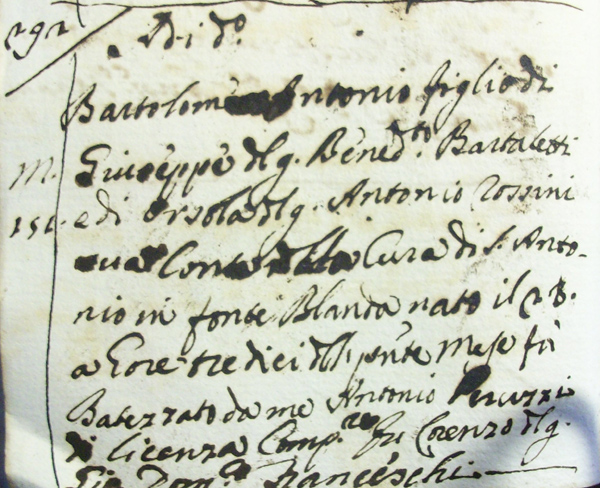 292
Adi do.
Bartolomè Antonio figlio di
M. Giuseppe dlq. Bened.to Bartaletti
151. e di Orsola dlq. Antonio Rossini
sua Conte della Cura di S. Anto-
nio in fonte Blanda nato il 28.
a Gore tredici dl pnte Mese fù
Batezzato da me Antonio Peruzzi
di licenza Comp.re fu Lorenzo dlq.
Gio Dom.co Franceschi